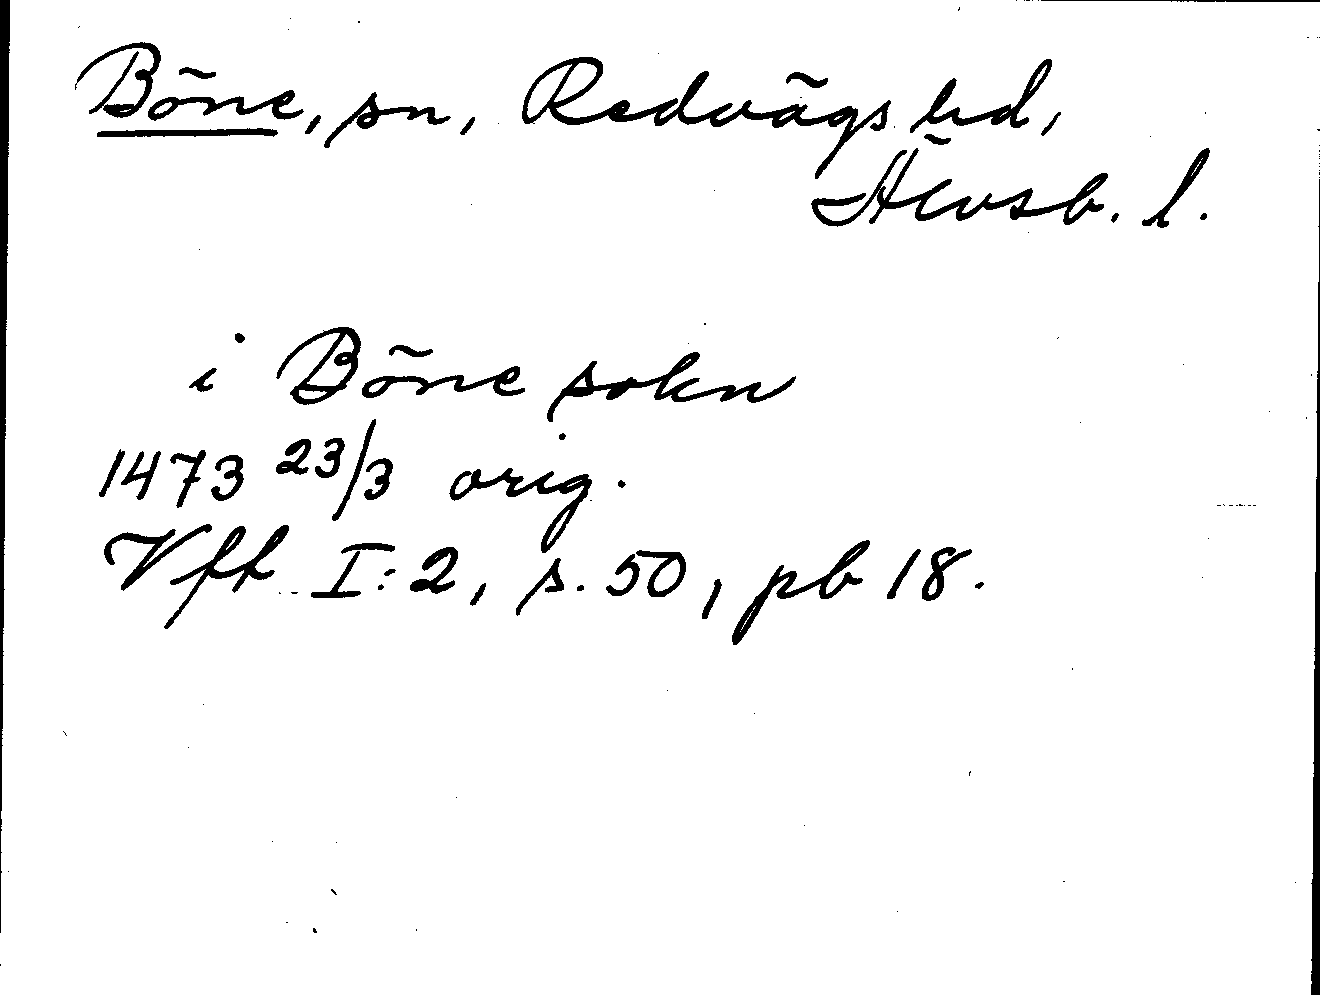 Böne, sn, Redvägs hd,
Älvsb. l.
i Böne sokn
1473 23/3 orig.
Vfft I:2, s. 50, pb 18.